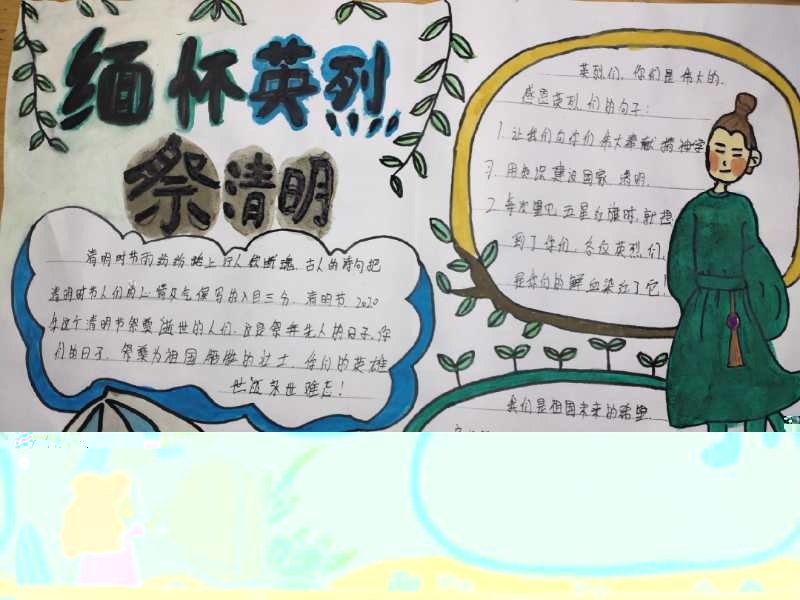 缅怀英烈
祭清明
清明时节雨纷纷路上行人欲断魂 古人的诗句把
清明时节人们的心情及气候写的入目三分. 清明节 2020
年这个清明节祭奠逝世的人们. 这是祭奔先人的日子,你
们的日子. 祭奠为祖国牺牲的壮士. 你们的英雄
世迹 永世难忘!
英烈们, 你们是伟大的.
感恩英烈们的句子:
1. 让我们向你们伟大奉献精神
3. 用知识建设国家 清明.
2. 每次望见五星红旗时, 就想
到了你们, 各位英烈们,
是你们的鲜血染红了它!
我们是祖国未来的希望.